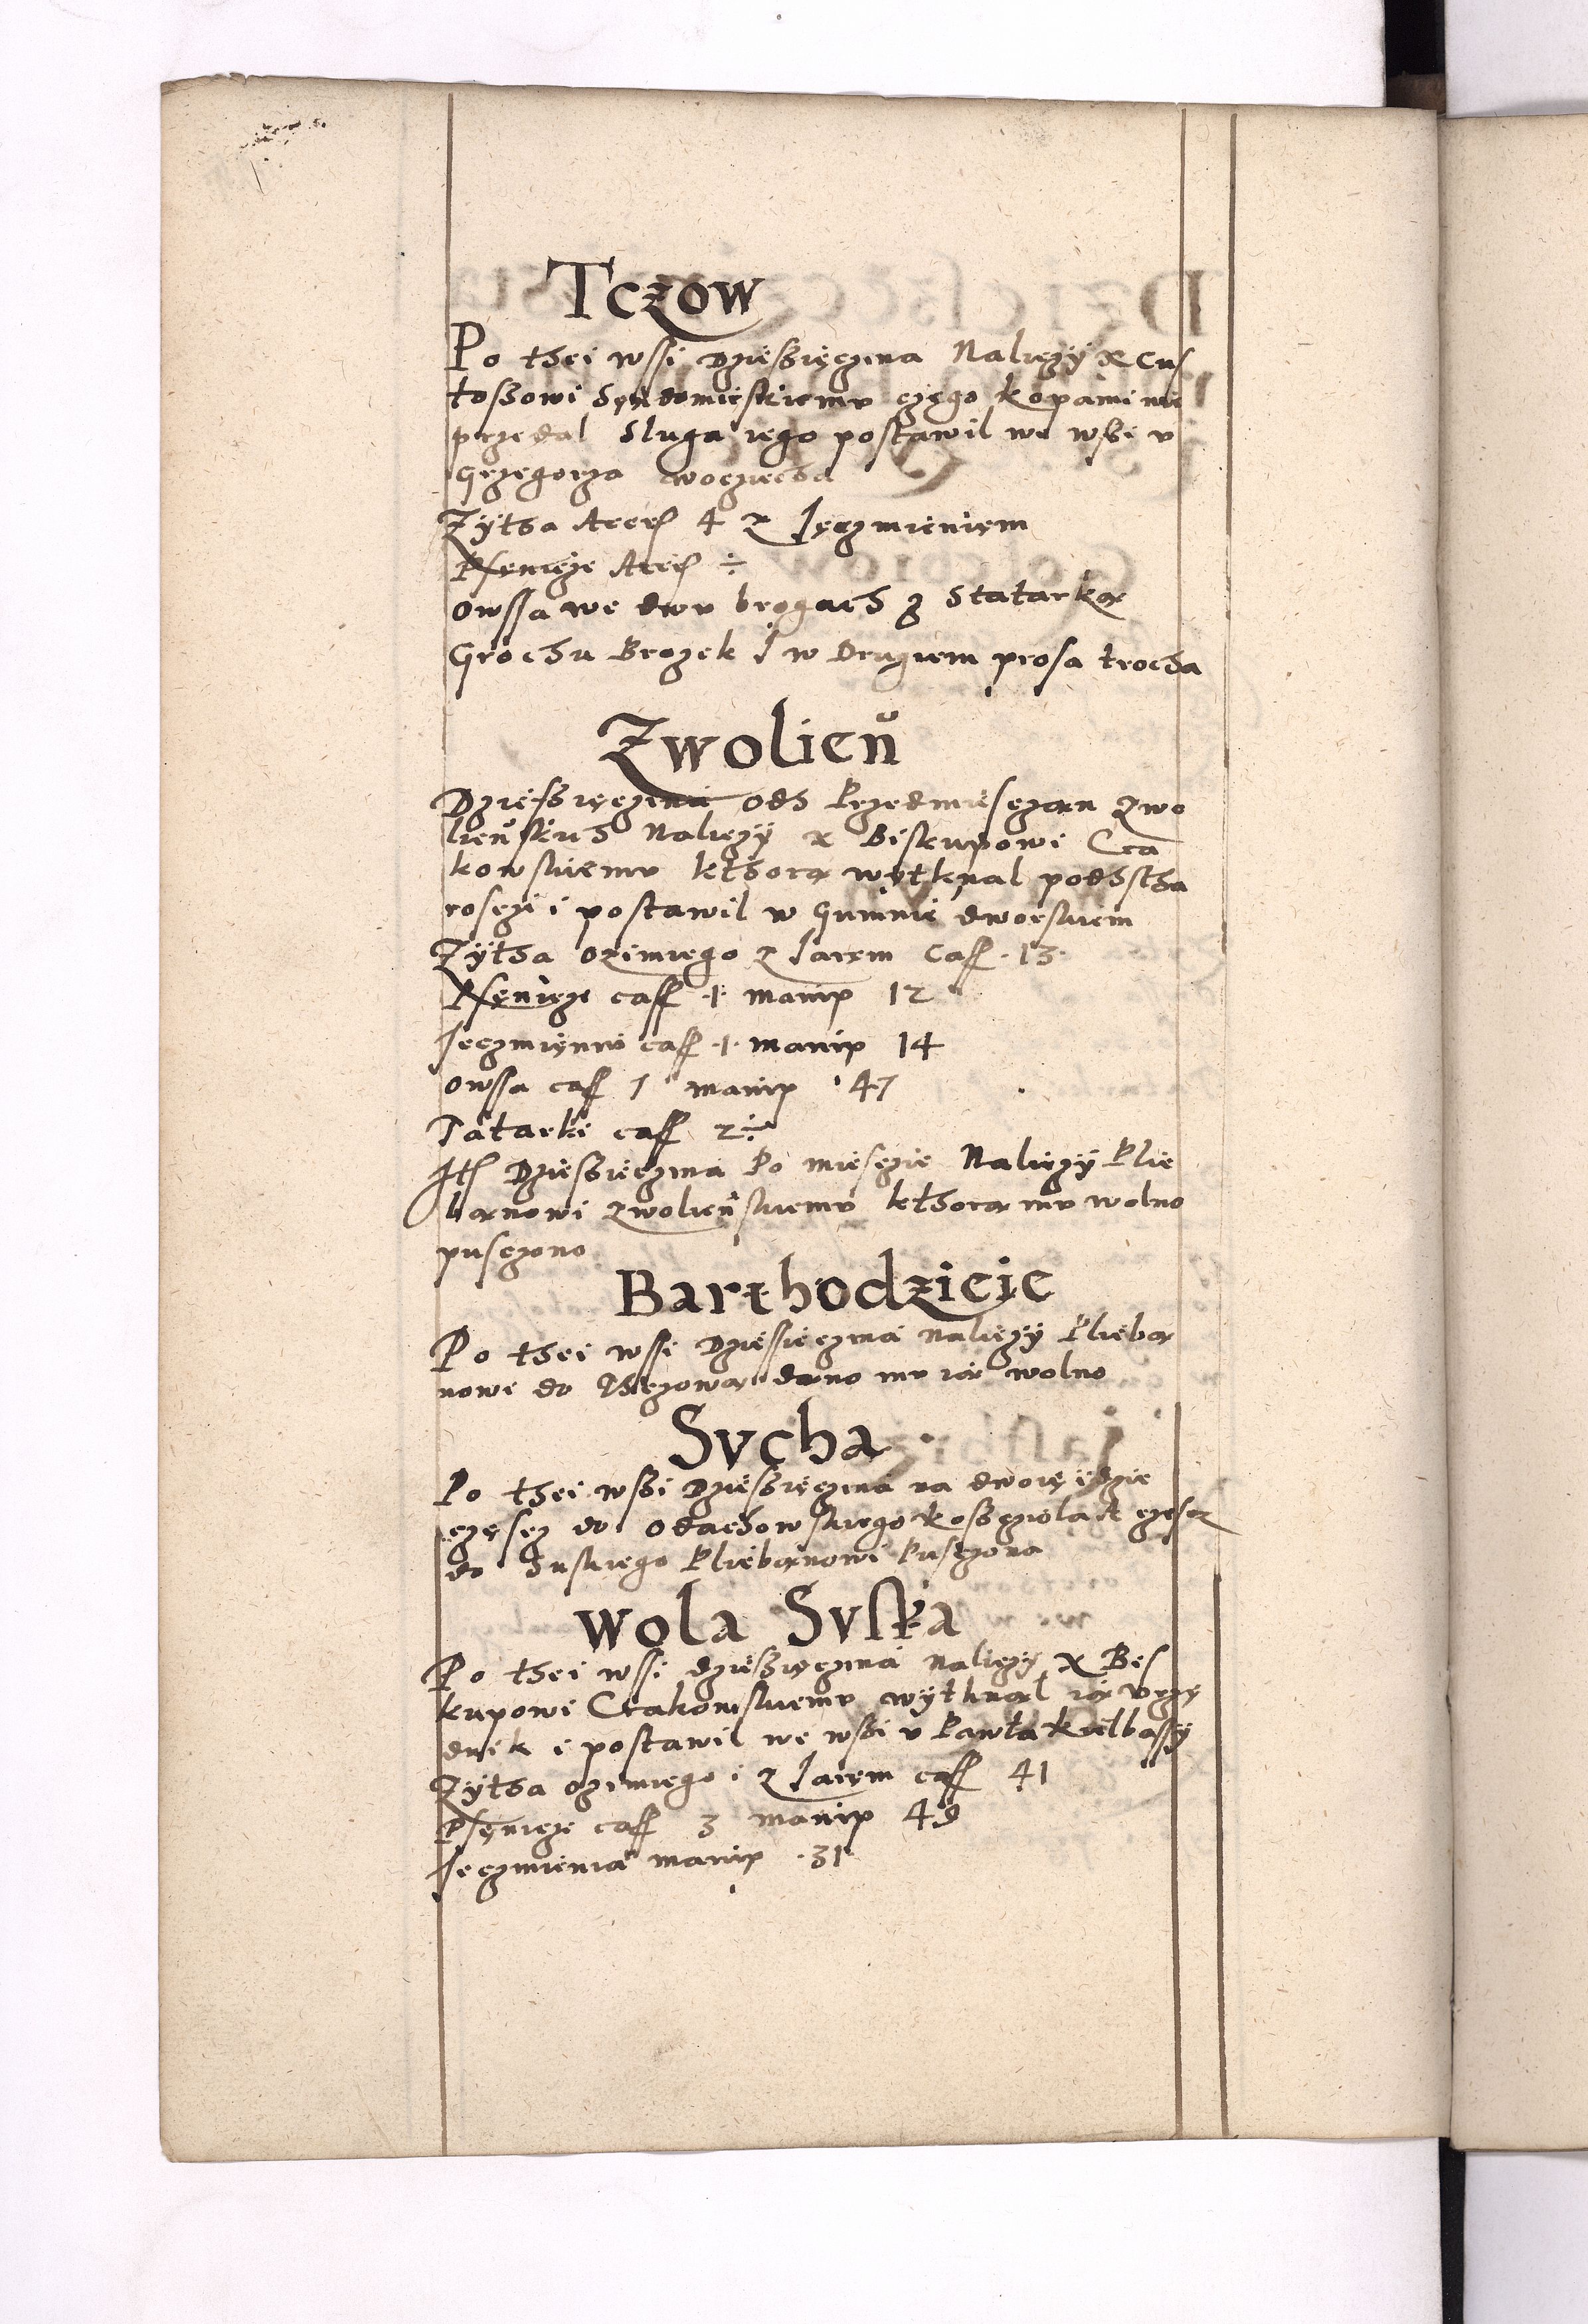 Tczow
Po thei wssi dziesięczina Należy x Cus
toszowi Sęndomieskiemv czego kopami nie
przedal Sluga iego postawil we wsse v
Grzegorza woczięcha
Zÿtha Acer 4 z Jęczmieniem
Psęnicze Acer ÷
owssa we dwv brogach z Statarką
Grochu Brozek J w Drugiem prosa trocha
Zwolień
Dziesszięczina odh Przedmiesczan zwo
lieńskich Nalieży x Biskupowi Cra
kowskiemv kthorą wytknal podhstha
rosczi i postawil w Gumnie dworskiem
Zÿtha ozimiego z Jarem Cass 13
Psęnicze cass 1 manip 12
Jeczmięniv cass 1 manip 14
owssa cass 1 manip 47
Tatarki cass 2 ÷
Ith Dzieszięczina Po miesczie Nalieży Plie
banowi zwolieńskiemv kthorą mv wolno
pusczono
Barthodzieie
Po thei wssi Dziesięczina nalieży Plieba
nowi do Thczowa dano mv ią wolno
Svcha
Po thei wssi Dziesszięczina na dwoię idzie
część do odachowskiego kosscziola A część
do Suskiego Pliebanowi Pusczona
wola Svska
Po thei wssi dziesszięczina nalieży x Bis
kupowi Crakowskiemv wÿtknal ią Vrzę
dnik i postawil we wssi v Pawła kielbassÿ
Zÿtha ozimiego i z Jarem cass 41
Psęnicze cass 3 manip 49
Jeczmienia manip 31